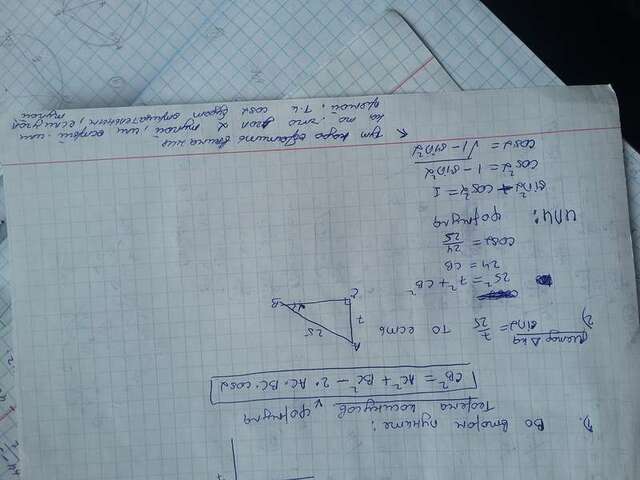 1). Во втором пункте:
теорема косинусов, формула
CB² = AC² + BC² - 2· AC· BC· cosα
метод Δка
2) sinα = 7/25 то есть
A
25
7
α
B
C
25² = 7² + CB²
24 = CB
cosα = 24/25
или: формула
sin²α + cos²α = 1
cos²α = 1 - sin²α
cosα = √1 - sin²α
↖ тут надо обратить внимание
на то, что угол α тупой, или острый или
прямой, т.к cosα будет отрицательным, если угол
тупой